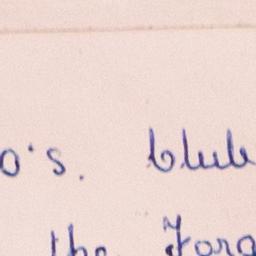 o's. blub
the Forg